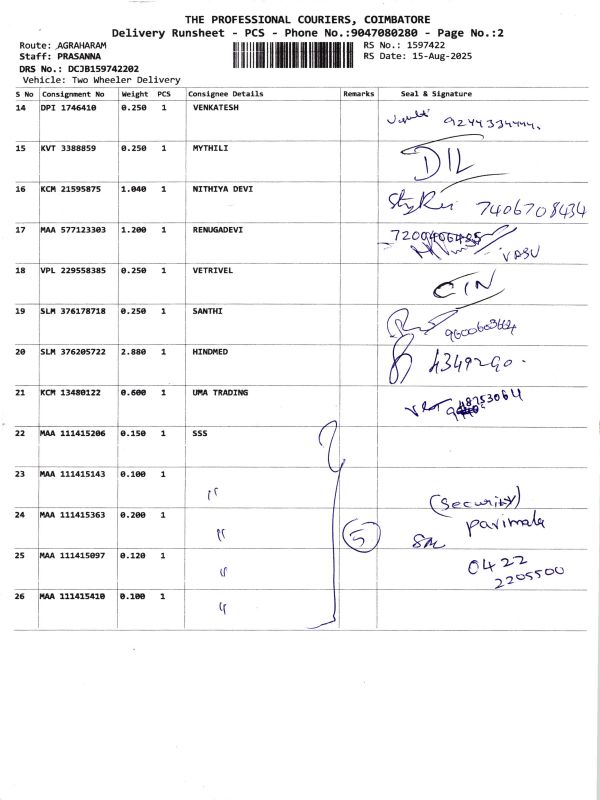 THE PROFESSIONAL COURIERS, COIMBATORE
Delivery Runsheet - PCS - Phone No.:9047080280 - Page No.:2
Route: AGRAHARAM RS No.: 1597422
Staff: PRASANNA RS Date: 15-Aug-2025
DRS No.: DCJB159742202
Vehicle: Two Wheeler Delivery
S No Consignment No Weight PCS Consignee Details Remarks Seal & Signature
14 DPI 1746410 0.250 1 VENKATESH
15 KVT 3388859 0.250 1 MYTHILI DIL
16 KCM 21595875 1.040 1 NITHIYA DEVI 7406708434
17 MAA 577123303 1.200 1 RENUGADEVI VASU
18 VPL 229558385 0.250 1 VETRIVEL CIN
19 SLM 376178718 0.250 1 SANTHI 9600603664
20 SLM 376205722 2.880 1 HINDMED 4349290.
21 KCM 13480122 0.600 1 UMA TRADING
22 MAA 111415206 0.150 1 SSS
23 MAA 111415143 0.100 1 " (Security)
24 MAA 111415363 0.200 1 " 5 parimala
25 MAA 111415097 0.120 1 " 0422
2205500
26 MAA 111415410 0.100 1 "